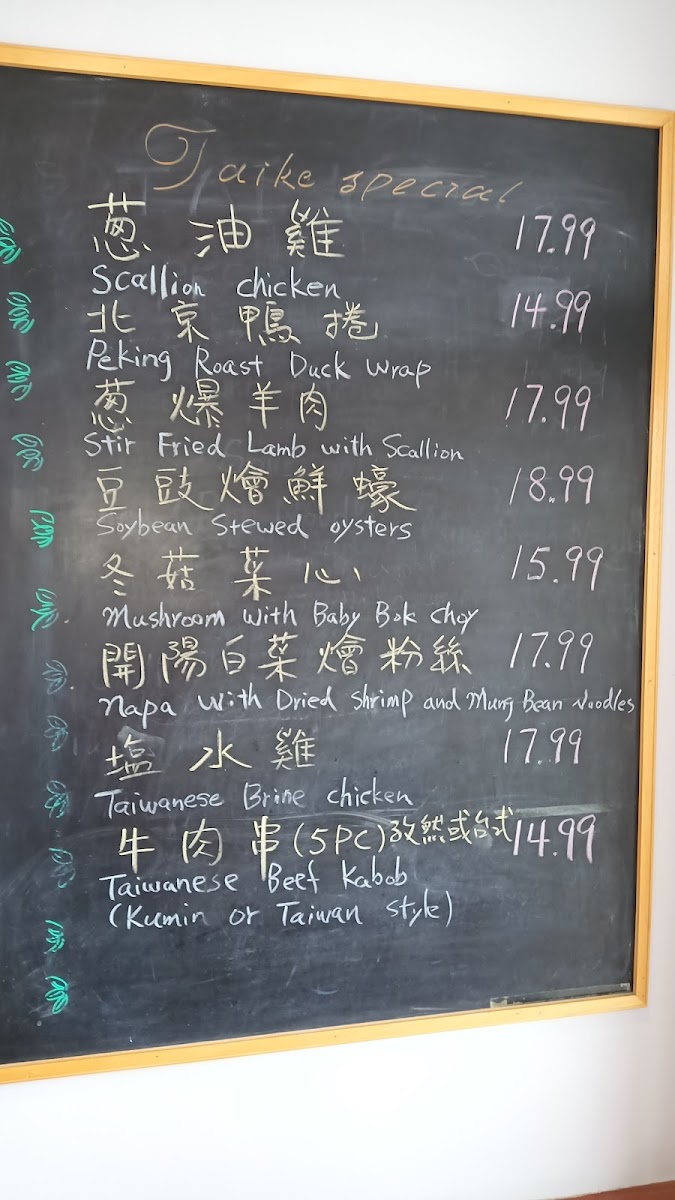 Taike special
蔥油雞 17.99
Scallion chicken
北京鴨捲 14.99
Peking Roast Duck wrap
蔥爆羊肉 17.99
Stir Fried Lamb with Scallion
豆豉燴鮮蠔 18.99
Soybean Stewed oysters
冬菇菜心 15.99
Mushroom with Baby Bok choy
開陽白菜燴粉絲 17.99
Napa with Dried shrimp and Mung Bean Noodles
塩水雞 17.99
Taiwanese Brine chicken
牛肉串(5PC)孜然或台式 14.99
Taiwanese Beef Kabob
(Kumin or Taiwan style)